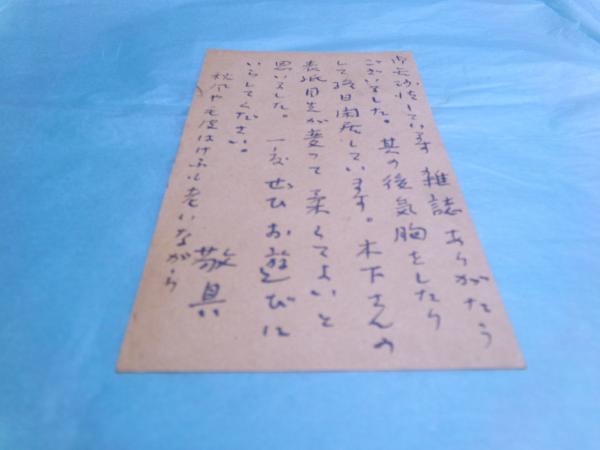 御無沙汰しています 雑誌ありがたう
ございました。其の後気胸をしたり
して終日閑居しています。木下さんの
表紙目先が変つて柔くてよいと
思いました。一度ぜひお遊びに
いらしてください。
敬具
秋風や 皮はけふも老いながら